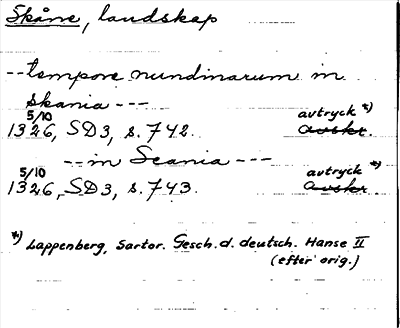 Skåne, landskap
--tempore nundinarum in
skania ---
5/10 avtryck *)
1326, SD3, s. 742. avskr.
--in Scania ---
5/10 avtryck *)
1326, SD3, s. 743. avskr.
*) Lappenberg, Sartor. Gesch. d. deutsch. Hanse II
(efter orig.)